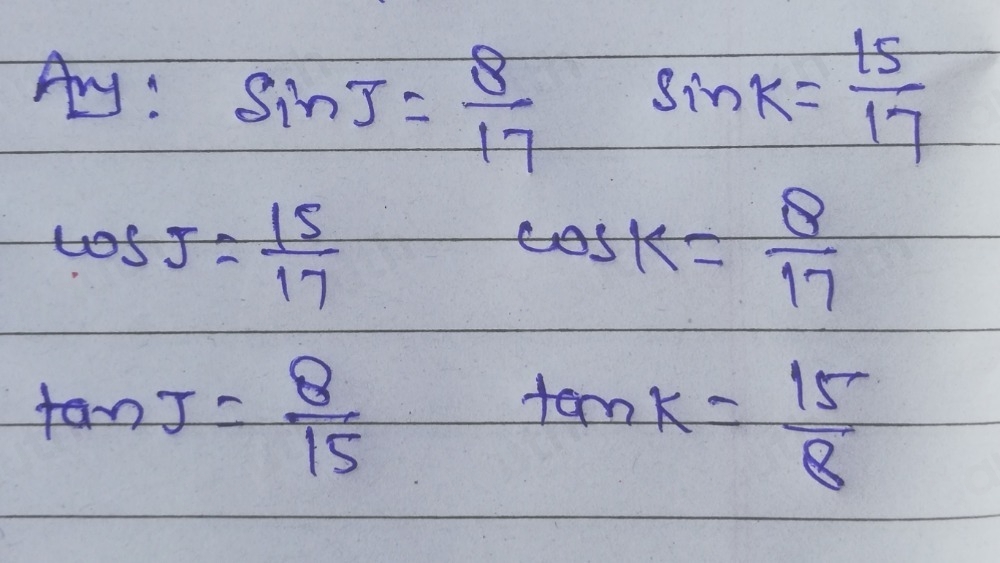 Ans: sin J = 8/17 sin K = 15/17
cos J = 15/17 cos K = 8/17
tan J = 8/15 tan K = 15/8